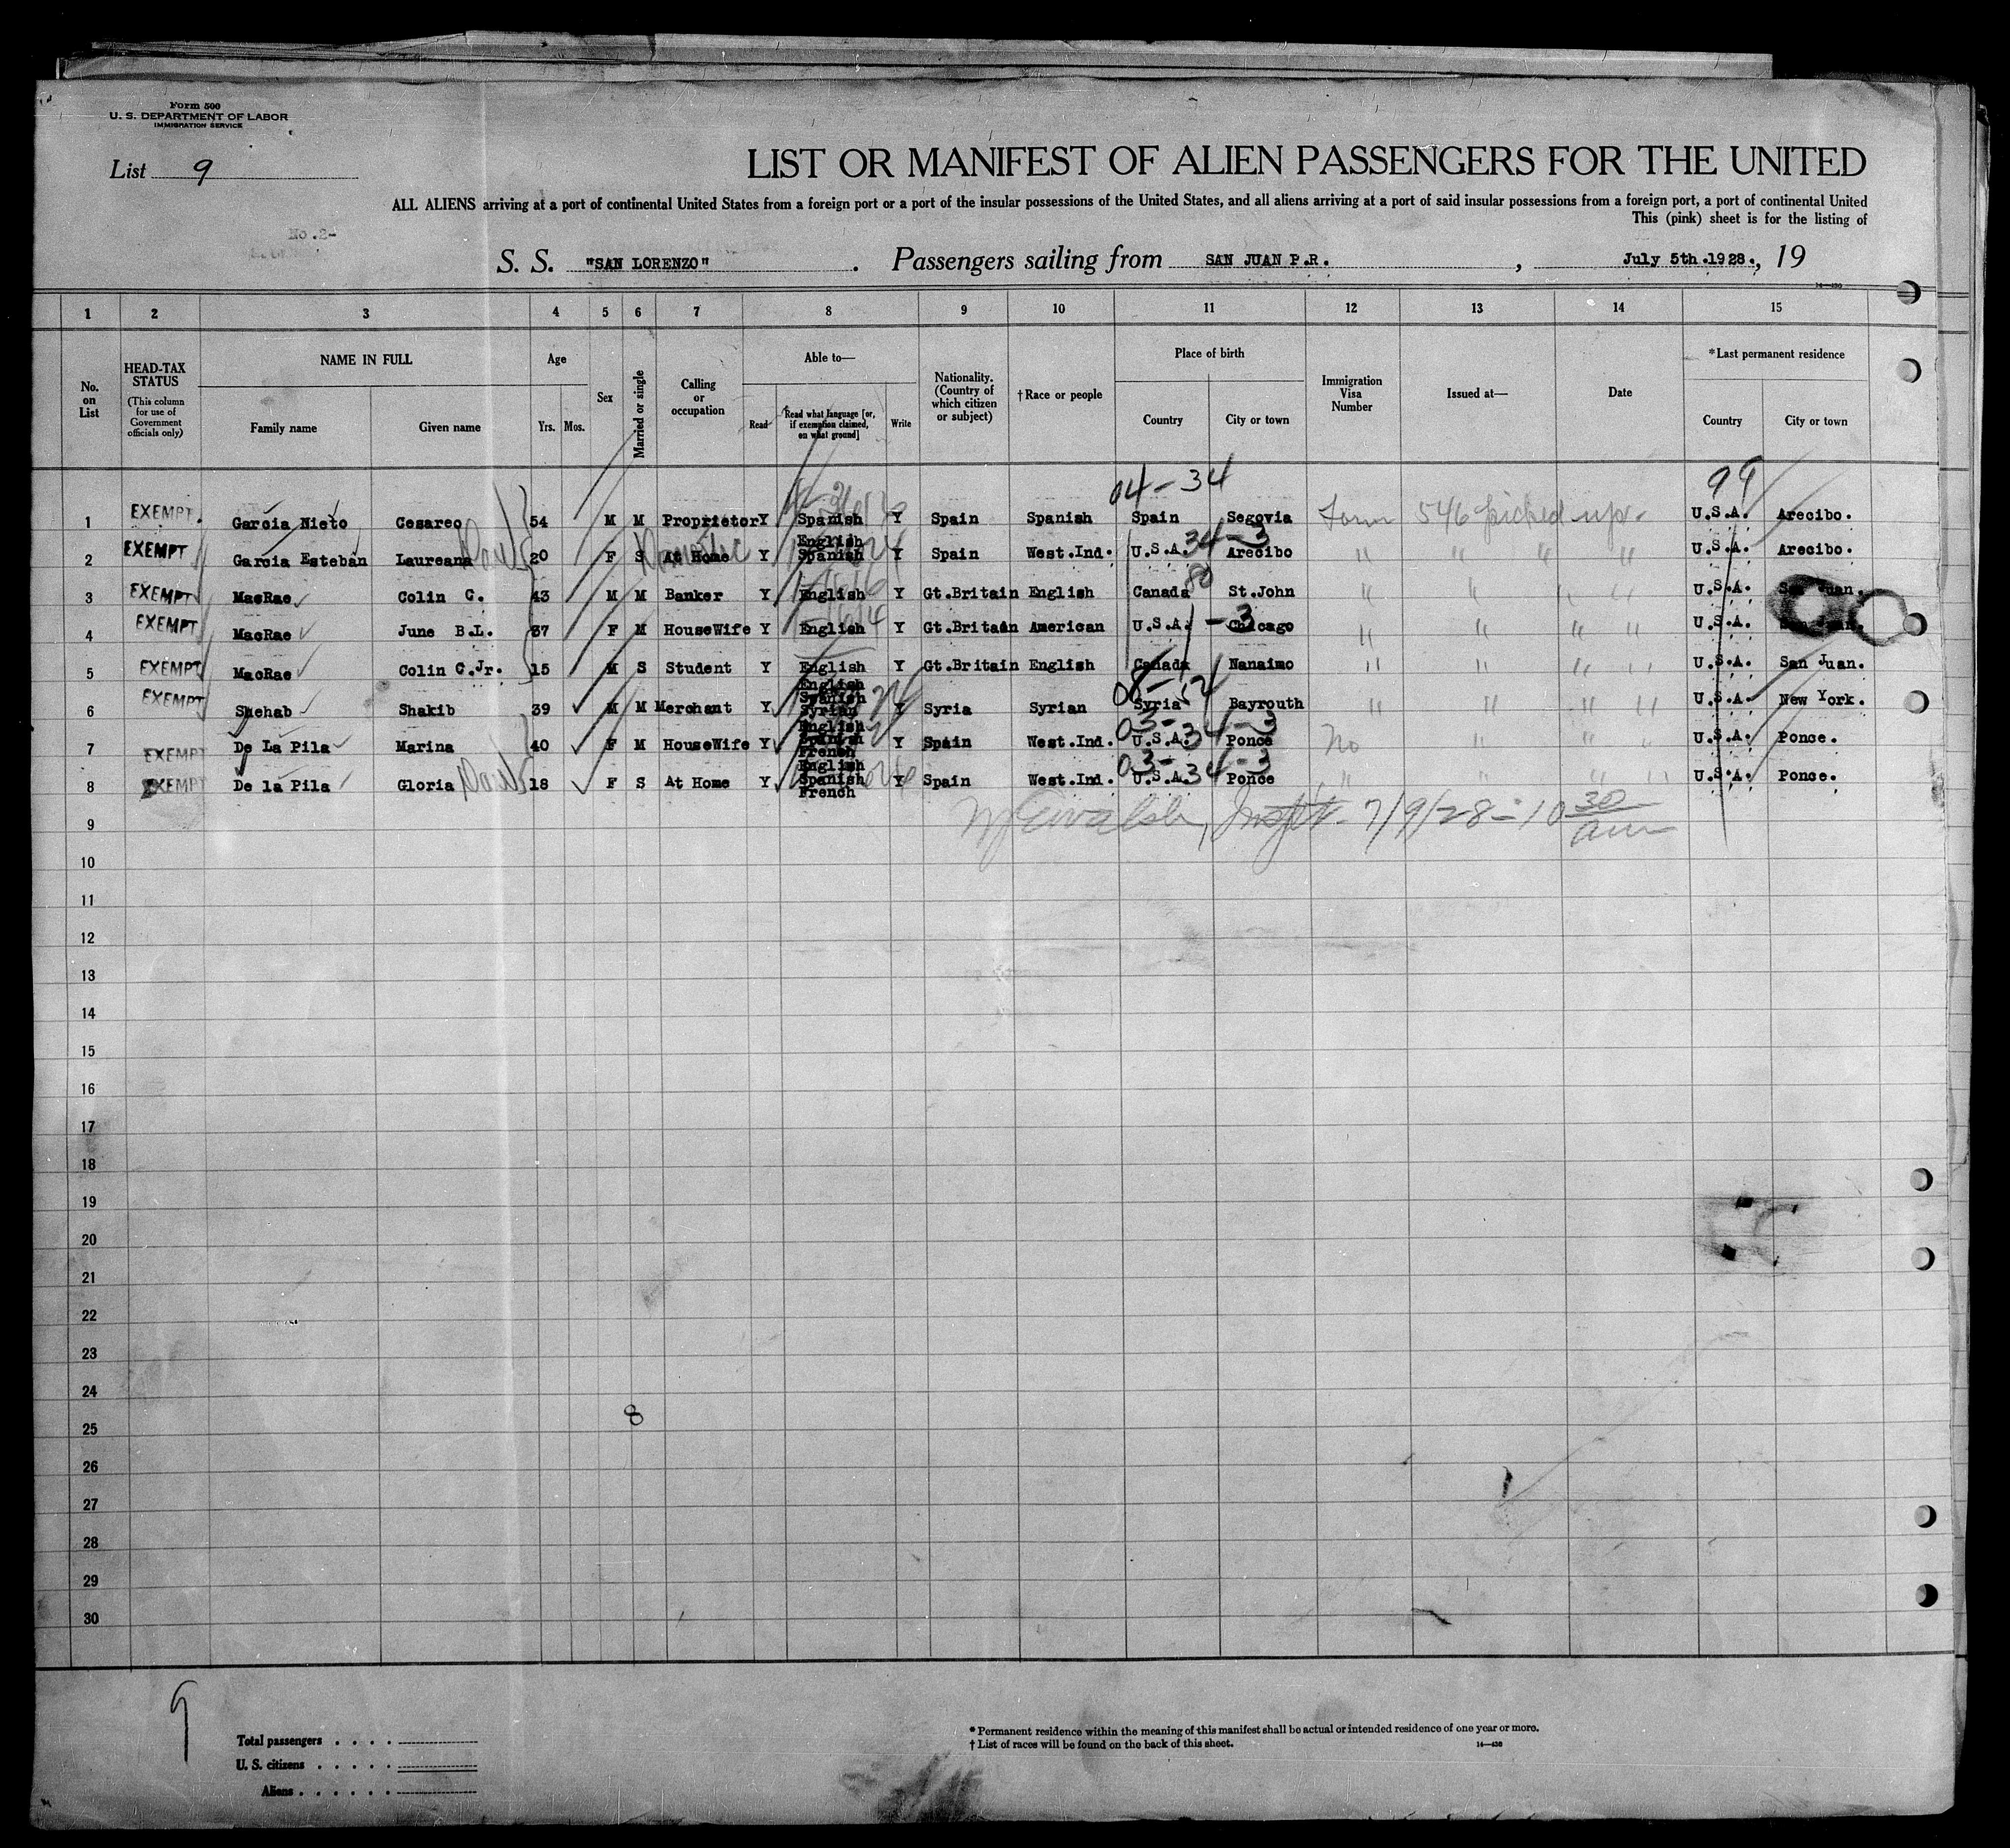 Form 500
U. S. DEPARTMENT OF LABOR
IMMIGRATION SERVICE
List 9
LIST OR MANIFEST OF ALIEN PASSENGERS FOR THE UNITED
ALL ALIENS arriving at a port of continental United States from a foreign port or a port of the insular possessions of the United States, and all aliens arriving at a port of said insular possessions from a foreign port, a port of continental United
This (pink) sheet is for the listing of
No.2-
S. S. "SAN LORENZO" . Passengers sailing from SAN JUAN P.R. , July 5th.1928., 19
14—430
1 2 3 4 5 6 7 8 9 10 11 12 13 14 15
No. on List
HEAD-TAX STATUS (This column for use of Government officials only)
NAME IN FULL Family name Given name
Age Yrs. Mos.
Sex
Married or single
Calling or occupation
Able to— Read Read what language [or, if exemption claimed, on what ground] Write
Nationality. (Country of which citizen or subject)
†Race or people
Place of birth Country City or town
Immigration Visa Number
Issued at—
Date
*Last permanent residence Country City or town
04-34 99
1 EXEMPT. Garcia Nieto Cesareo 54 M M Proprietor Y Spanish Y Spain Spanish Spain Segovia Form 546 picked up. U.S.A. Arecibo.
2 EXEMPT Garcia Esteban Laureana 20 F S At Home Domestic Y English Spanish Y Spain West.Ind. U.S.A. 34-3 Arecibo " " " " U.S.A. Arecibo.
3 EXEMPT MacRae Colin C. 43 M M Banker Y English Y Gt.Britain English Canada 80 St.John " " " " U.S.A. San Juan.
4 EXEMPT MacRae June B.L. 37 F M HouseWife Y English Y Gt.Britain American U.S.A. -3 Chicago " " " " U.S.A.
5 EXEMPT MacRae Colin C.Jr. 15 M S Student Y English Y Gt.Britain English Canada Nanaimo " " " " U.S.A. San Juan.
6 EXEMPT Shehab Shakib 39 M M Merchant Y English Spanish Syrian Y Syria Syrian Syria Bayrouth " " " " U.S.A. New York.
7 EXEMPT De La Pila Marina 40 F M HouseWife Y English Spanish French Y Spain West.Ind. 03-34-3 U.S.A. Ponce No " " " U.S.A. Ponce.
8 EXEMPT De la Pila Gloria 18 F S At Home Y English Spanish French Y Spain West.Ind. 03-34-3 U.S.A. Ponce " " " " U.S.A. Ponce.
9 7/9/28 - 10 30 am
10
11
12
13
14
15
16
17
18
19
20
21
22
23
24
8
25
26
27
28
29
30
9
Total passengers . . . .
U. S. citizens . . . . .
Aliens . . . . . .
* Permanent residence within the meaning of this manifest shall be actual or intended residence of one year or more.
† List of races will be found on the back of this sheet. 14—430